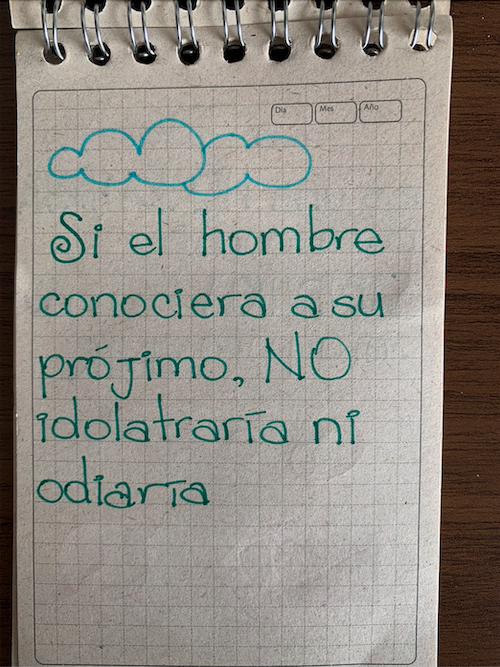 Día Mes Año
Si el hombre
conociera a su
prójimo, NO
idolatraría ni
odiaría